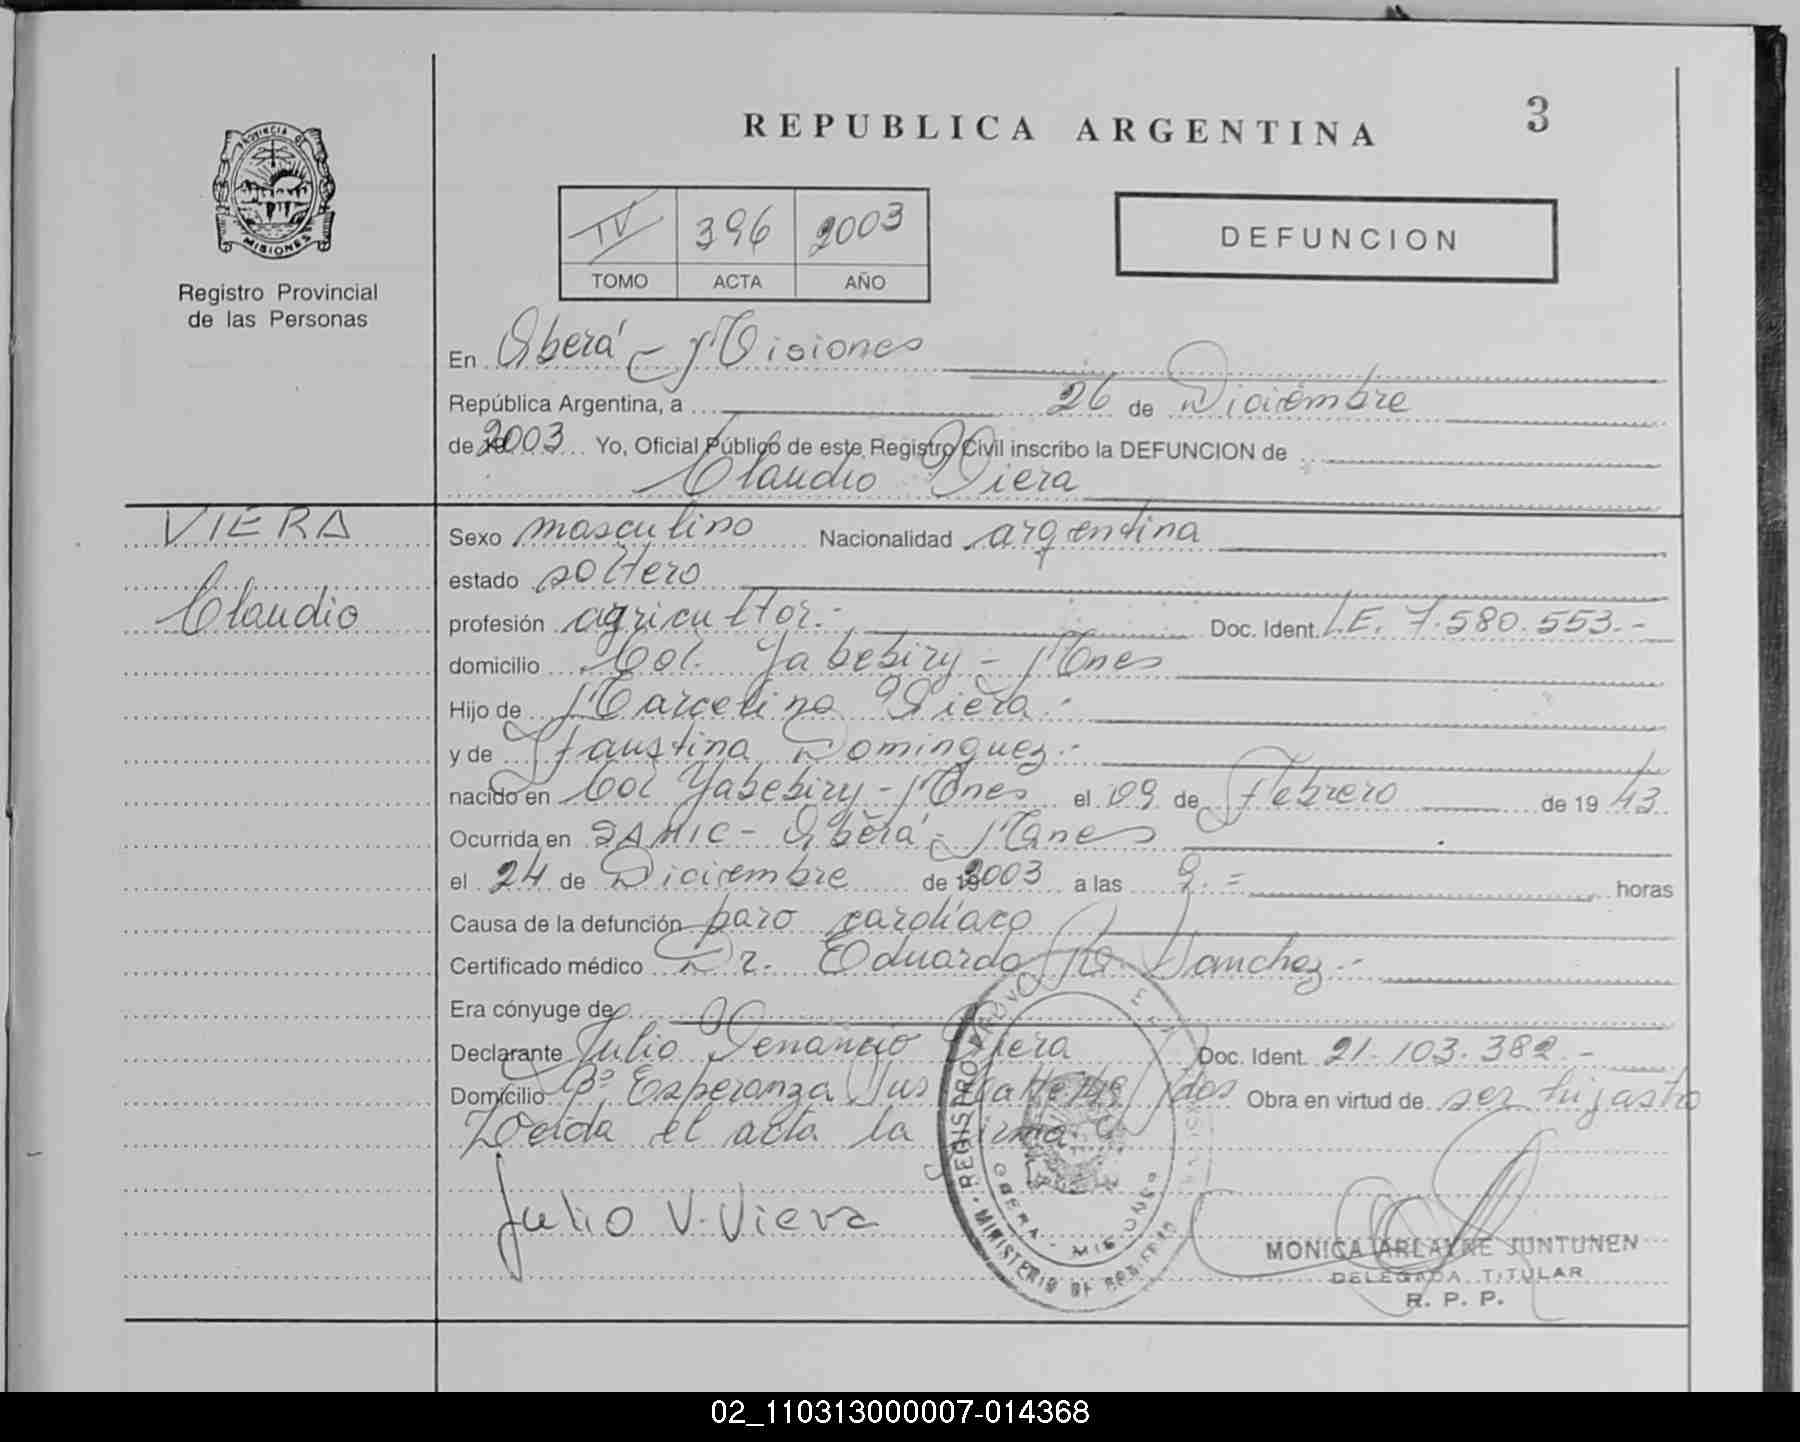 REPUBLICA ARGENTINA
3
PROVINCIA DE
MISIONES
Registro Provincial
de las Personas
IV 396 2003
TOMO ACTA AÑO
DEFUNCION
En Oberá - Misiones
República Argentina, a 26 de Diciembre
de 19 2003 Yo, Oficial Público de este Registro Civil inscribo la DEFUNCION de
Claudio Viera
VIERA
Claudio
Sexo masculino Nacionalidad argentina
estado soltero
profesión agricultor.- Doc. Ident. L.E. 7.580.553.-
domicilio Col. Yabebiry - Mnes
Hijo de Marcelino Viera.-
y de Faustina Dominguez.-
nacido en Col Yabebiry - Mnes el 09 de Febrero de 19 43
Ocurrida en SAMIC - Oberá - Mnes
el 24 de Diciembre de 19 2003 a las 9.= horas
Causa de la defunción paro cardíaco
Certificado médico Dr. Eduardo Sanchez.-
Era cónyuge de
Declarante Julio Venancio Viera Doc. Ident. 21.103.382.-
Domicilio Bº Esperanza Obra en virtud de ser hijastro
Leída el acta la firma
Julio V. Viera
REGISTRO
OBERA - MISIONES
MINISTERIO DE GOBIERNO
MONICA ARLAYNE JUNTUNEN
DELEGADA TITULAR
R. P. P.
02_110313000007-014368